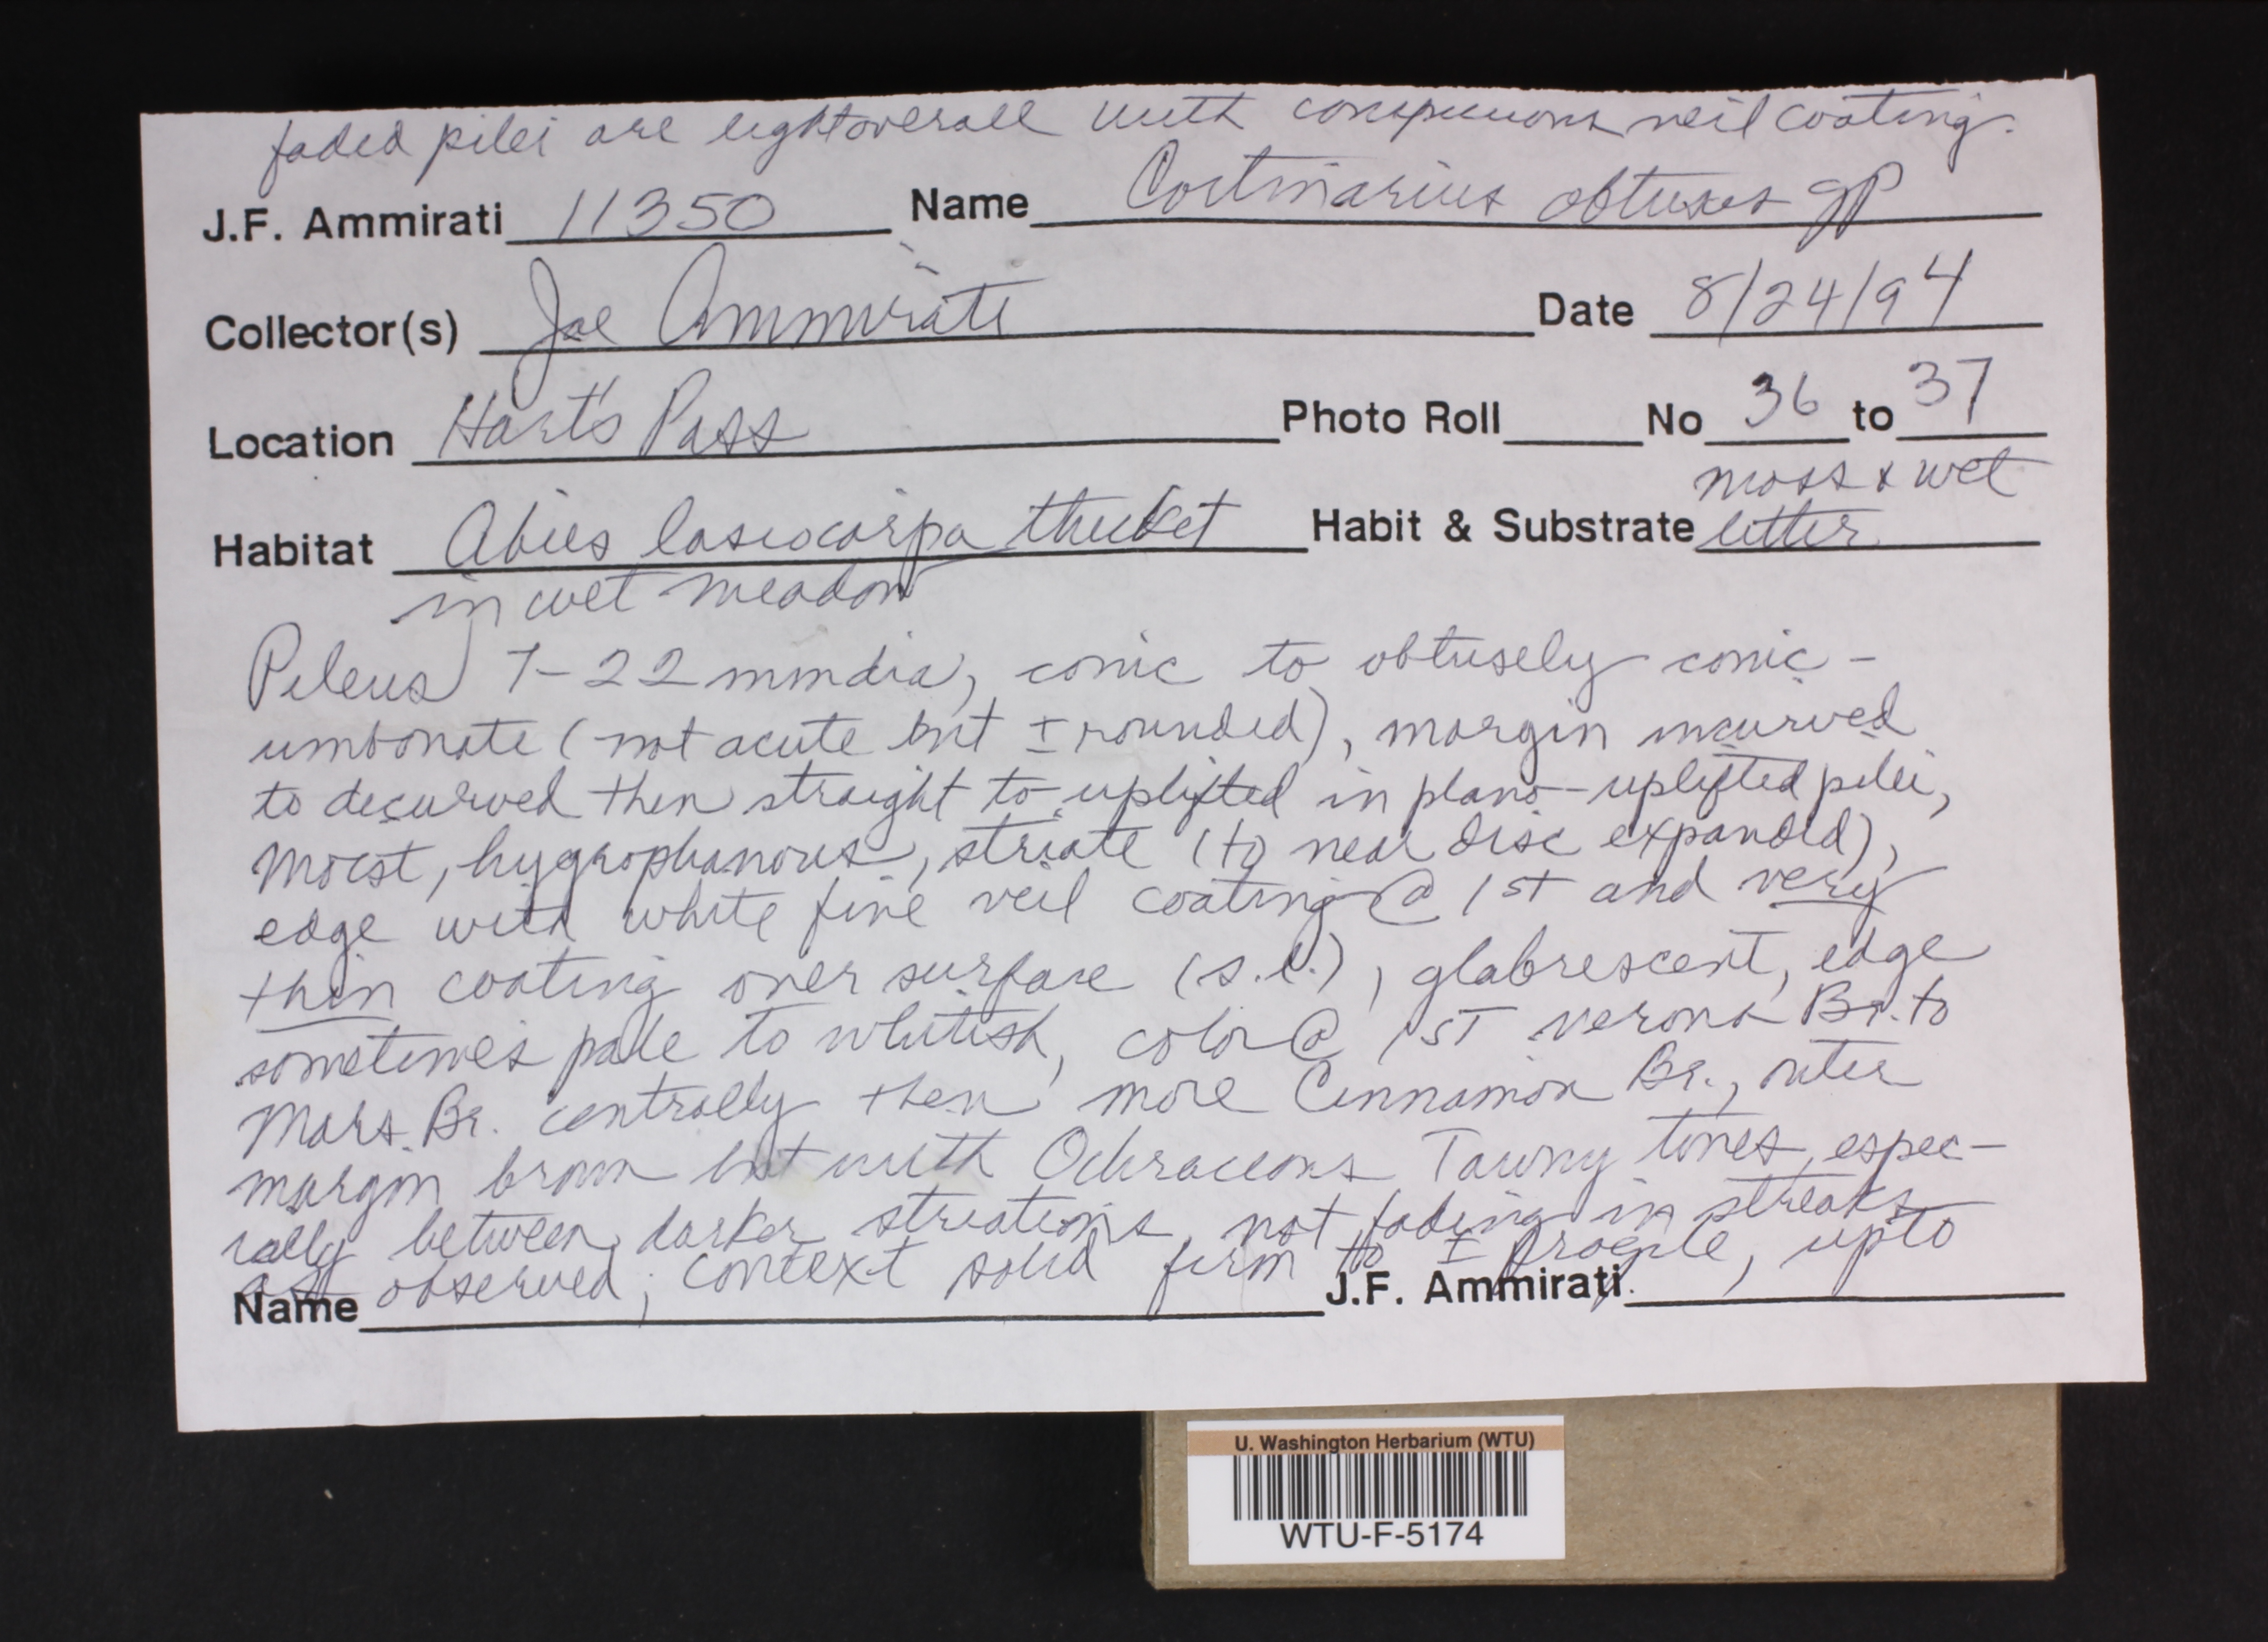 faded pilei are light overall with conspicuous veil coating.
J.F. Ammirati 11350 Name Cortinarius obtusus gp
Collector(s) Joe Ammirati Date 8/24/94
Location Hart's Pass Photo Roll No 36 to 37
Habitat Abies lasiocarpa thicket Habit & Substrate moss & wet litter
in wet meadow
Pileus 7-22 mm dia, conic to obtusely conic-
umbonate (not acute but ± rounded), margin incurved
to decurved then straight to uplifted in plano-uplifted pilei,
moist, hygrophanous, striate (to near disc expanded),
edge with white fine veil coating @ 1st and very
thin coating over surface (s.l.), glabrescent, edge
sometimes pale to whitish, color @ 1ST verona Br. to
Mars Br. centrally then more Cinnamon Br., outer
margin brown but with Ochraceous Tawny tones, espec-
ially between darker striations, not fading in streaks
as observed; context solid firm to ± fragile, up to
Name J.F. Ammirati
U. Washington Herbarium (WTU)
WTU-F-5174